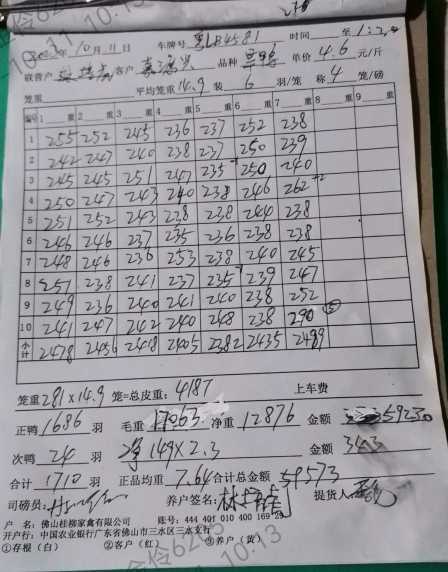 10月11日 车牌号 粤LB4581 时间 至1:
联营户 客户 品种 单价 4.6 元/斤
笼重 平均笼重 14.9 装 6 羽/笼 称 4 笼/磅
编号 1 重 2 重 3 重 4 重 5 重 6 重 7 重 8 重 9 重
1 255 252 245 236 237 252 238
2 242 247 240 238 237 250 239
3 245 245 251 247 235 250 240
4 250 247 243 240 238 246 262 +2
5 251 252 243 238 238 244 238
6 246 246 237 235 236 238 238
7 248 246 236 253 238 240 245
8 251 238 241 237 235 239 247
9 249 236 240 241 240 238 252
10 241 247 242 240 248 238 290 ⑤
小计 2478 2456 2418 2405 2382 2435 2489
笼重 281×14.9 笼=总皮重: 4187 上车费
正鸭 1686 羽 毛重 17063 净重 12876 金额 59230
次鸭 24 羽 净 149×2.3 金额 343
合计 1710 羽 正品均重 7.64 合计总金额 59573
司磅员: 养户签名: 提货人
户 名: 佛山桂柳家禽有限公司 账号: 444 401 010 400 169
开户行: 中国农业银行广东省佛山市三水区三水支行
①存根(白) ②客户(红) ③养户(黄)
10.13